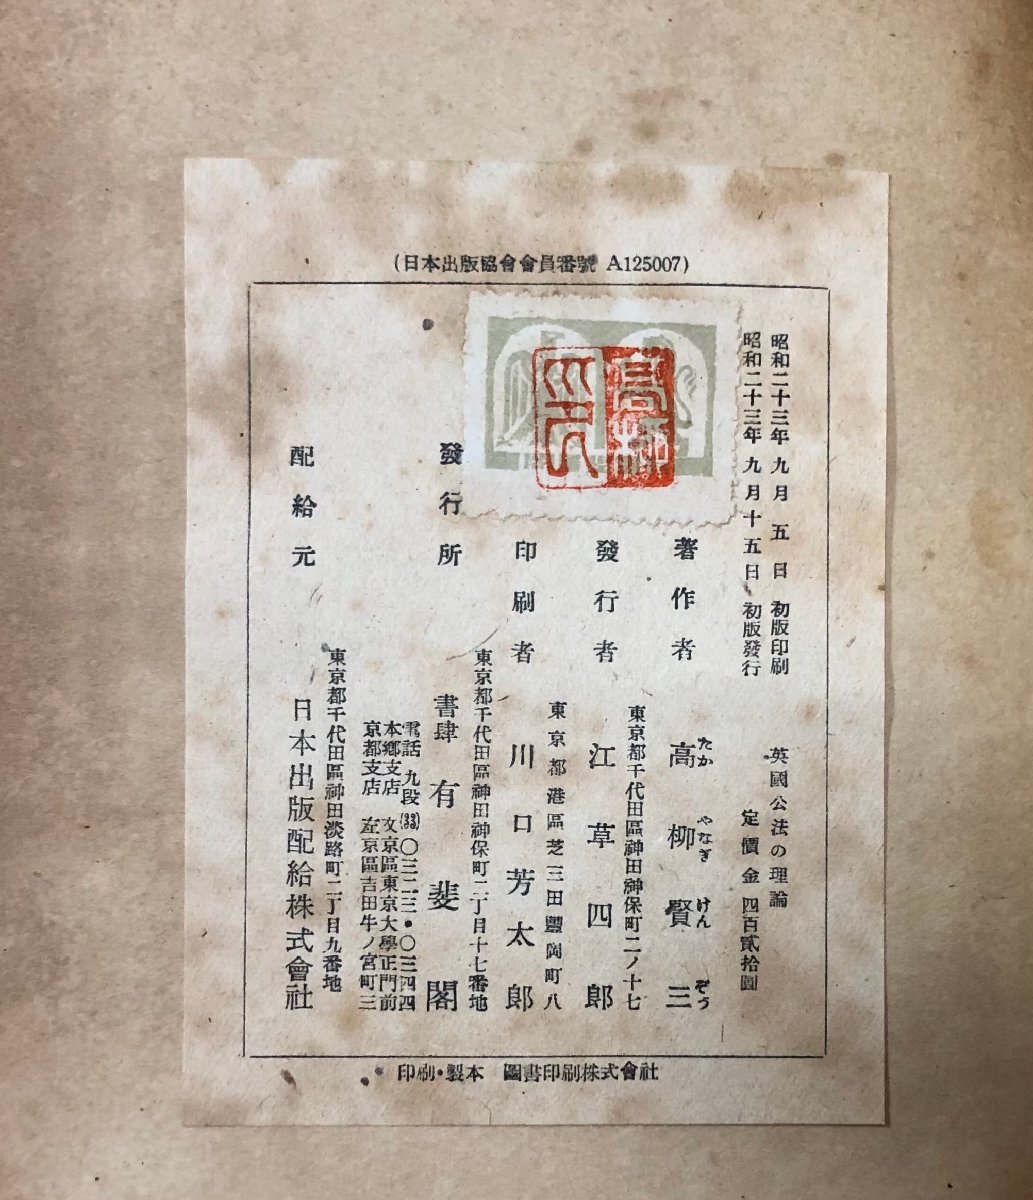 (日本出版協會會員番號 A125007)
昭和二十三年九月五日 初版印刷
昭和二十三年九月十五日 初版發行
英國公法の理論
定價金四百貳拾圓
高柳
著作者 高柳賢三
たか やなぎ けん ぞう
東京都千代田區神田神保町二ノ十七
發行者 江草四郎
東京都港區芝三田豐岡町八
印刷者 川口芳太郎
東京都千代田區神田神保町二丁目十七番地
發行所 書肆 有斐閣
電話 九段(33)〇三二三・〇三四四
本鄕支店 文京區東京大學正門前
京都支店 左京區吉田牛ノ宮町三
東京都千代田區神田淡路町二丁目九番地
配給元 日本出版配給株式會社
印刷・製本 圖書印刷株式會社